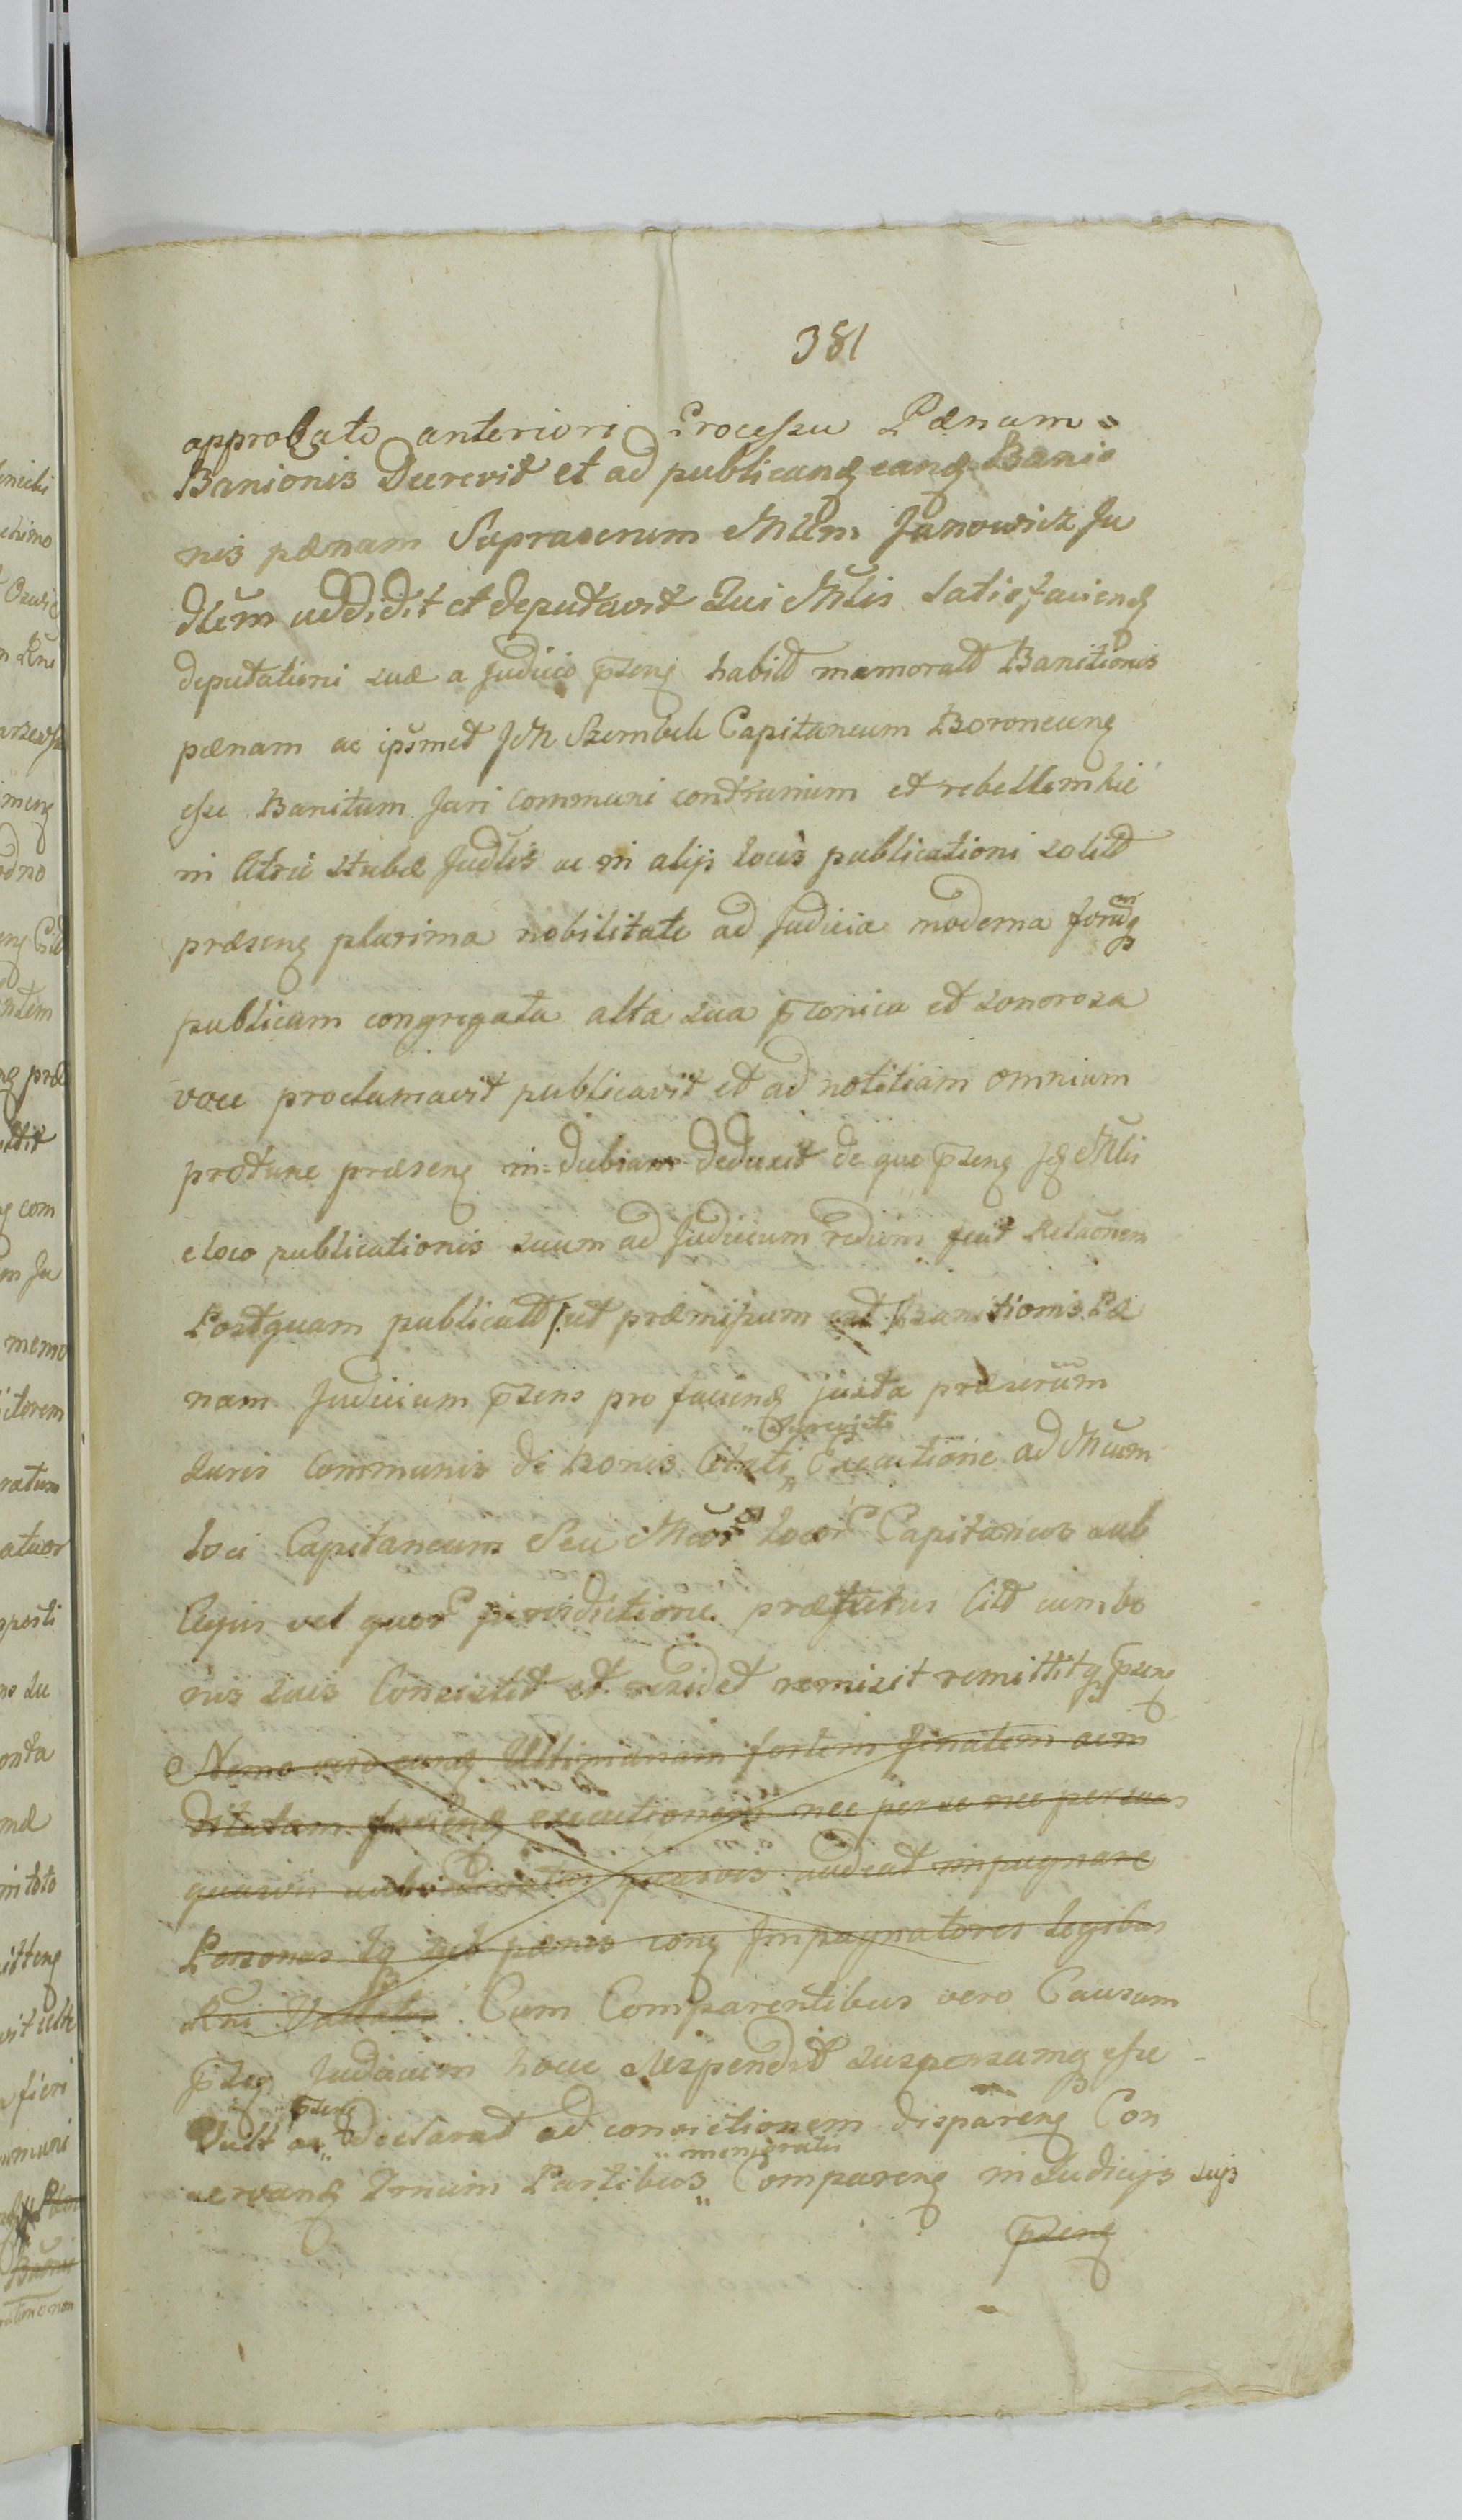 381
approbato anteriori Processu Pœnam
Banionis Decrevit et ad publicanđ eanđ Banio
nis pœnam Suprascrum Mlem Janowicz Ju
dlem addidit et deputavit Qui Mlis satisfacienđ
deputationi suæ a Judicio p̃senȩ habitđ memoratđ Banitionis
pœnam ac ipsmet Szembek Capitaneum Boroneunȩ
esse Banitum Juri communi contrarium et rebellem hic
in Atrii stubæ Judlis ac in alijs locis publicationi solitđ
præsenȩ plurima nobilitate ad Judicia moderna
publicum congregata alta sua p̃conica et sonorosa
voce proclamavit publicavit et ad notitiam omnium
protunc præsenȩ in-dubiam deduxit de quo p̃senȩ Mlis
e loco publicationis suum ad Judicium rediens fecit Relaõnem
Postquam publicatđ /ut præmissum est/ Banitionis Pæ
nam Judicium p̃sens pro facienđ juxta præscrũm
Juris communis de bonis Citati Executione ad Mcum
loci Capitaneum Seu Mcor locor Capitaneos sub
Cujus vel quor jurisdictione præfatus Citđ cum bo
nis suis Consistit et residet remisit remittitq p̃senȩ
Nemo vero eanđ Ultimariam fortem finalem
dilatam facienđ executionem nec per se nec per suas
quasvis subordinatas personas audeat impugnare
Personas sub pænis conȩ Impugnatores Legibus
Rni Vallatis Cum Comparentibus vero Causam
p̃senȩ Judicium hocce suspendit suspensamq esse
Vult ac p̃senȩ declarat ad convictionem disparenȩ Con
servanđ Trnum Partibus memoratis Comparenȩ in Judicijs sujs
p̃senȩ